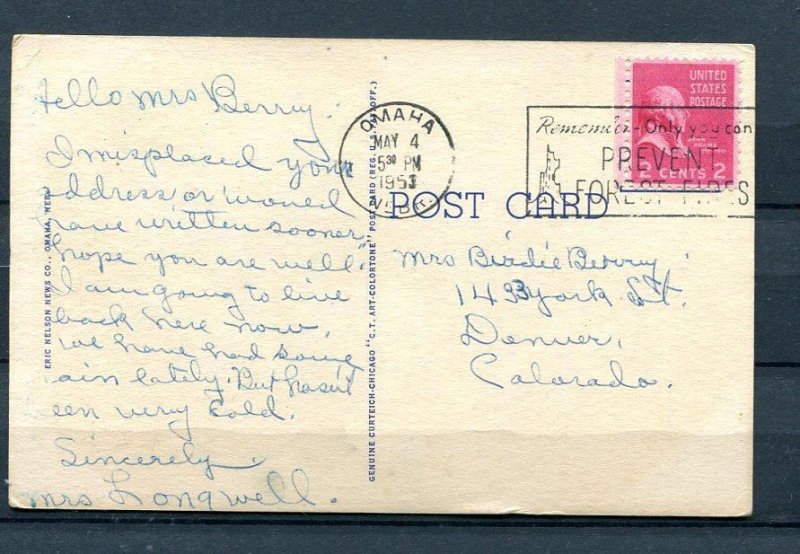 Hello Mrs Berry.
I misplaced your
address or would
have written sooner.
hope you are well.
I am going to live
back here now.
we have had some
rain lately. But hasn't
been very cold.
Sincerely
Mrs Longwell.
ERIC NELSON NEWS CO., OMAHA, NEBR.
GENUINE CURTEICH-CHICAGO "C.T. ART-COLORTONE" POST CARD (REG. U.S. PAT. OFF.)
OMAHA
MAY 4
5 30 PM
1953
NEBR.
Remember- Only you can
PREVENT
FOREST FIRES
UNITED
STATES
POSTAGE
JOHN
ADAMS
2 CENTS 2
POST CARD
Mrs Birdie Berry
1433 York St.
Denver,
Colorado.